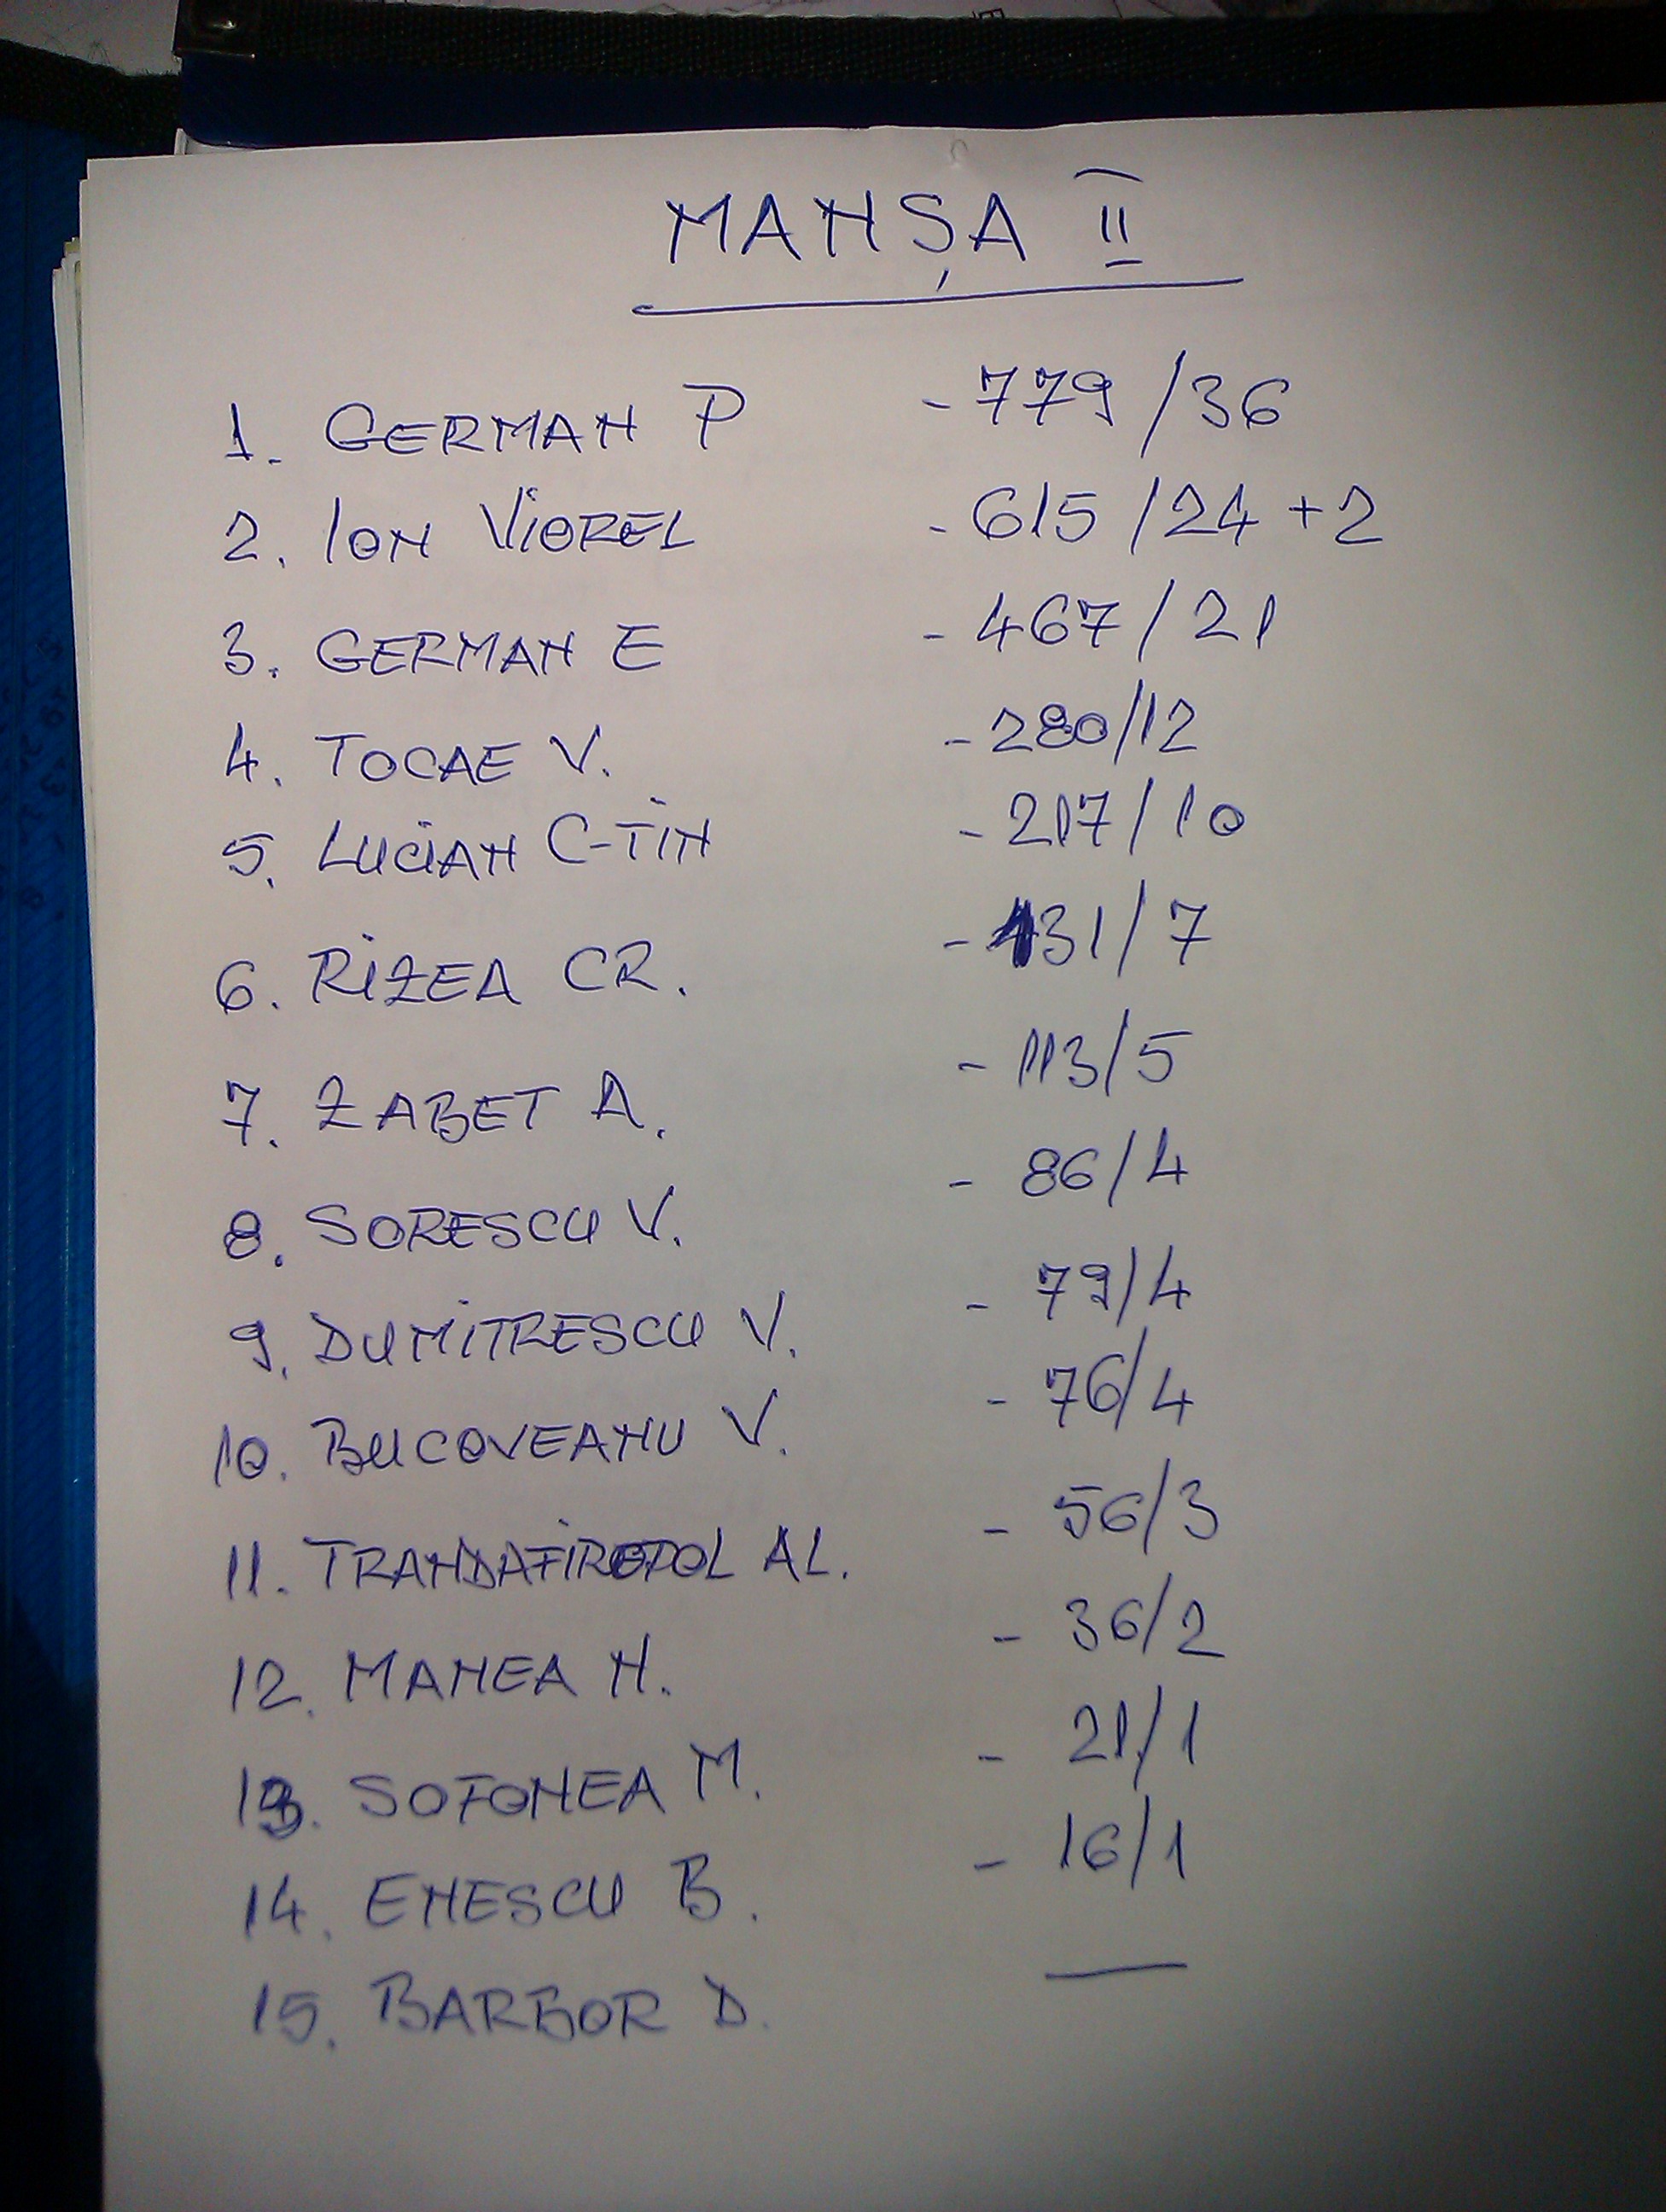 MANȘA II
1. GERMAN P - 779 / 36
2. ION VIOREL - 615 / 24 + 2
3. GERMAN E - 467 / 21
4. TOCAE V. - 280/12
5. LUCIAN C-TIN - 217 / 10
6. RIZEA CR. - 131 / 7
7. ZABET A. - 113/5
8. SORESCU V. - 86/4
9. DUMITRESCU V. - 79/4
10. BUCOVEANU V. - 76/4
11. TRANDAFIROPOL AL. - 56/3
12. MANEA N. - 36/2
13. SOFONEA M. - 21/1
14. ENESCU B. - 16/1
15. BARBOR D. —